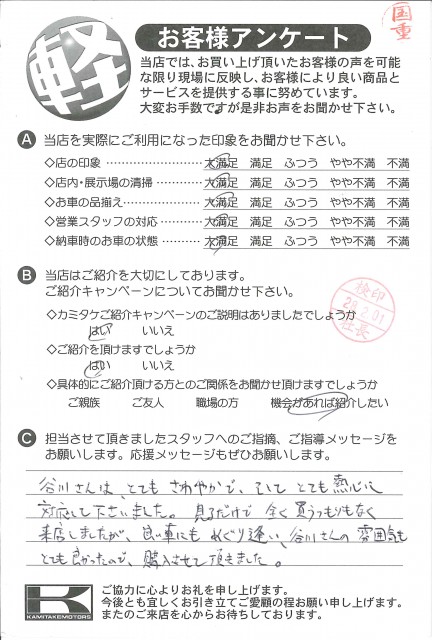 国重
軽
お客様アンケート
当店では、お買い上げ頂いたお客様の声を可能
な限り現場に反映し、お客様により良い商品と
サービスを提供する事に努めています。
大変お手数ですが是非お声をお聞かせ下さい。
A 当店を実際にご利用になった印象をお聞かせ下さい。
◇店の印象 大満足 満足 ふつう やや不満 不満
◇店内・展示場の清掃 大満足 満足 ふつう やや不満 不満
◇お車の品揃え 大満足 満足 ふつう やや不満 不満
◇営業スタッフの対応 大満足 満足 ふつう やや不満 不満
◇納車時のお車の状態 大満足 満足 ふつう やや不満 不満
B 当店はご紹介を大切にしております。
ご紹介キャンペーンについてお聞かせ下さい。
◇カミタケご紹介キャンペーンのご説明はありましたでしょうか
はい いいえ
◇ご紹介を頂けますでしょうか
はい いいえ
検印
28.2.01
社長
◇具体的にご紹介頂ける方とのご関係をお聞かせ頂けますでしょうか
ご親族 ご友人 職場の方 機会があれば紹介したい
C 担当させて頂きましたスタッフへのご指摘、ご指導メッセージを
お願いします。応援メッセージもぜひお願いします。
谷川さんは、とても さわやかで、そして とても 熱心に
対応して下さいました。見るだけで 全く 買うつもりもなく
来店しましたが、良い車にも めぐり逢い、谷川さんの 雰囲気も
とても良かったので、購入させて頂きました。
K
KAMITAKEMOTORS
ご協力に心よりお礼を申し上げます。
今後とも宜しくお引き立てご愛顧の程お願い申し上げます。
またのご来店を心からお待ちしております。